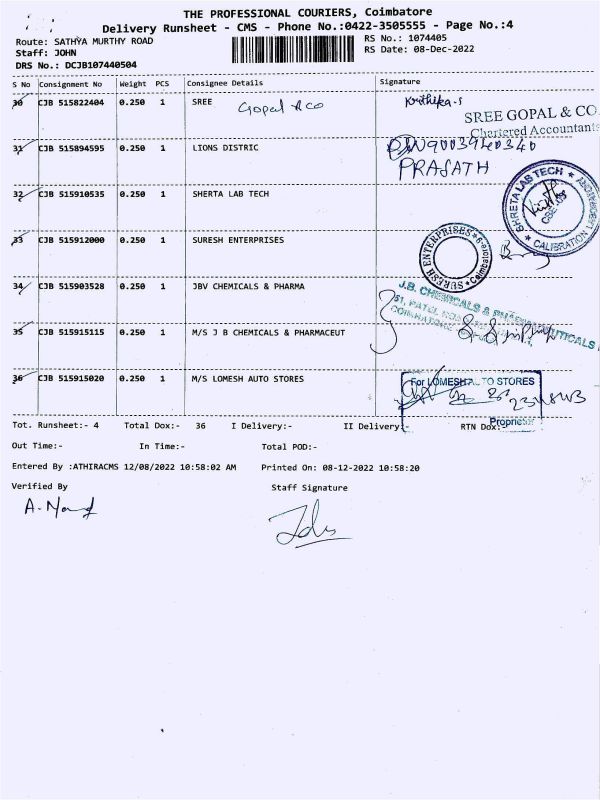 THE PROFESSIONAL COURIERS, Coimbatore
Delivery Runsheet - CMS - Phone No.:0422-3505555 - Page No.:4
Route: SATHYA MURTHY ROAD
Staff: JOHN
DRS No.: DCJB107440504
RS No.: 1074405
RS Date: 08-Dec-2022
S No Consignment No Weight PCS Consignee Details Signature
30 CJB 515822404 0.250 1 SREE Gopal & Co Krithika-S
SREE GOPAL & CO
Chartered Accountants
31 CJB 515894595 0.250 1 LIONS DISTRIC
PRASATH
32 CJB 515910535 0.250 1 SHERTA LAB TECH
SHRETA LAB TECH CALIBRATION LABORATORY CBE
33 CJB 515912000 0.250 1 SURESH ENTERPRISES
SURESH ENTERPRISES Coimbatore
34 CJB 515903528 0.250 1 JBV CHEMICALS & PHARMA
J.B. CHEMICALS & PHARMACEUTICALS
35 CJB 515915115 0.250 1 M/S J B CHEMICALS & PHARMACEUT
36 CJB 515915020 0.250 1 M/S LOMESH AUTO STORES
For LOMESH AUTO STORES
Proprietor
Tot. Runsheet:- 4 Total Dox:- 36 I Delivery:- II Delivery:- RTN Dox:
Out Time:- In Time:- Total POD:-
Entered By :ATHIRACMS 12/08/2022 10:58:02 AM Printed On: 08-12-2022 10:58:20
Verified By Staff Signature